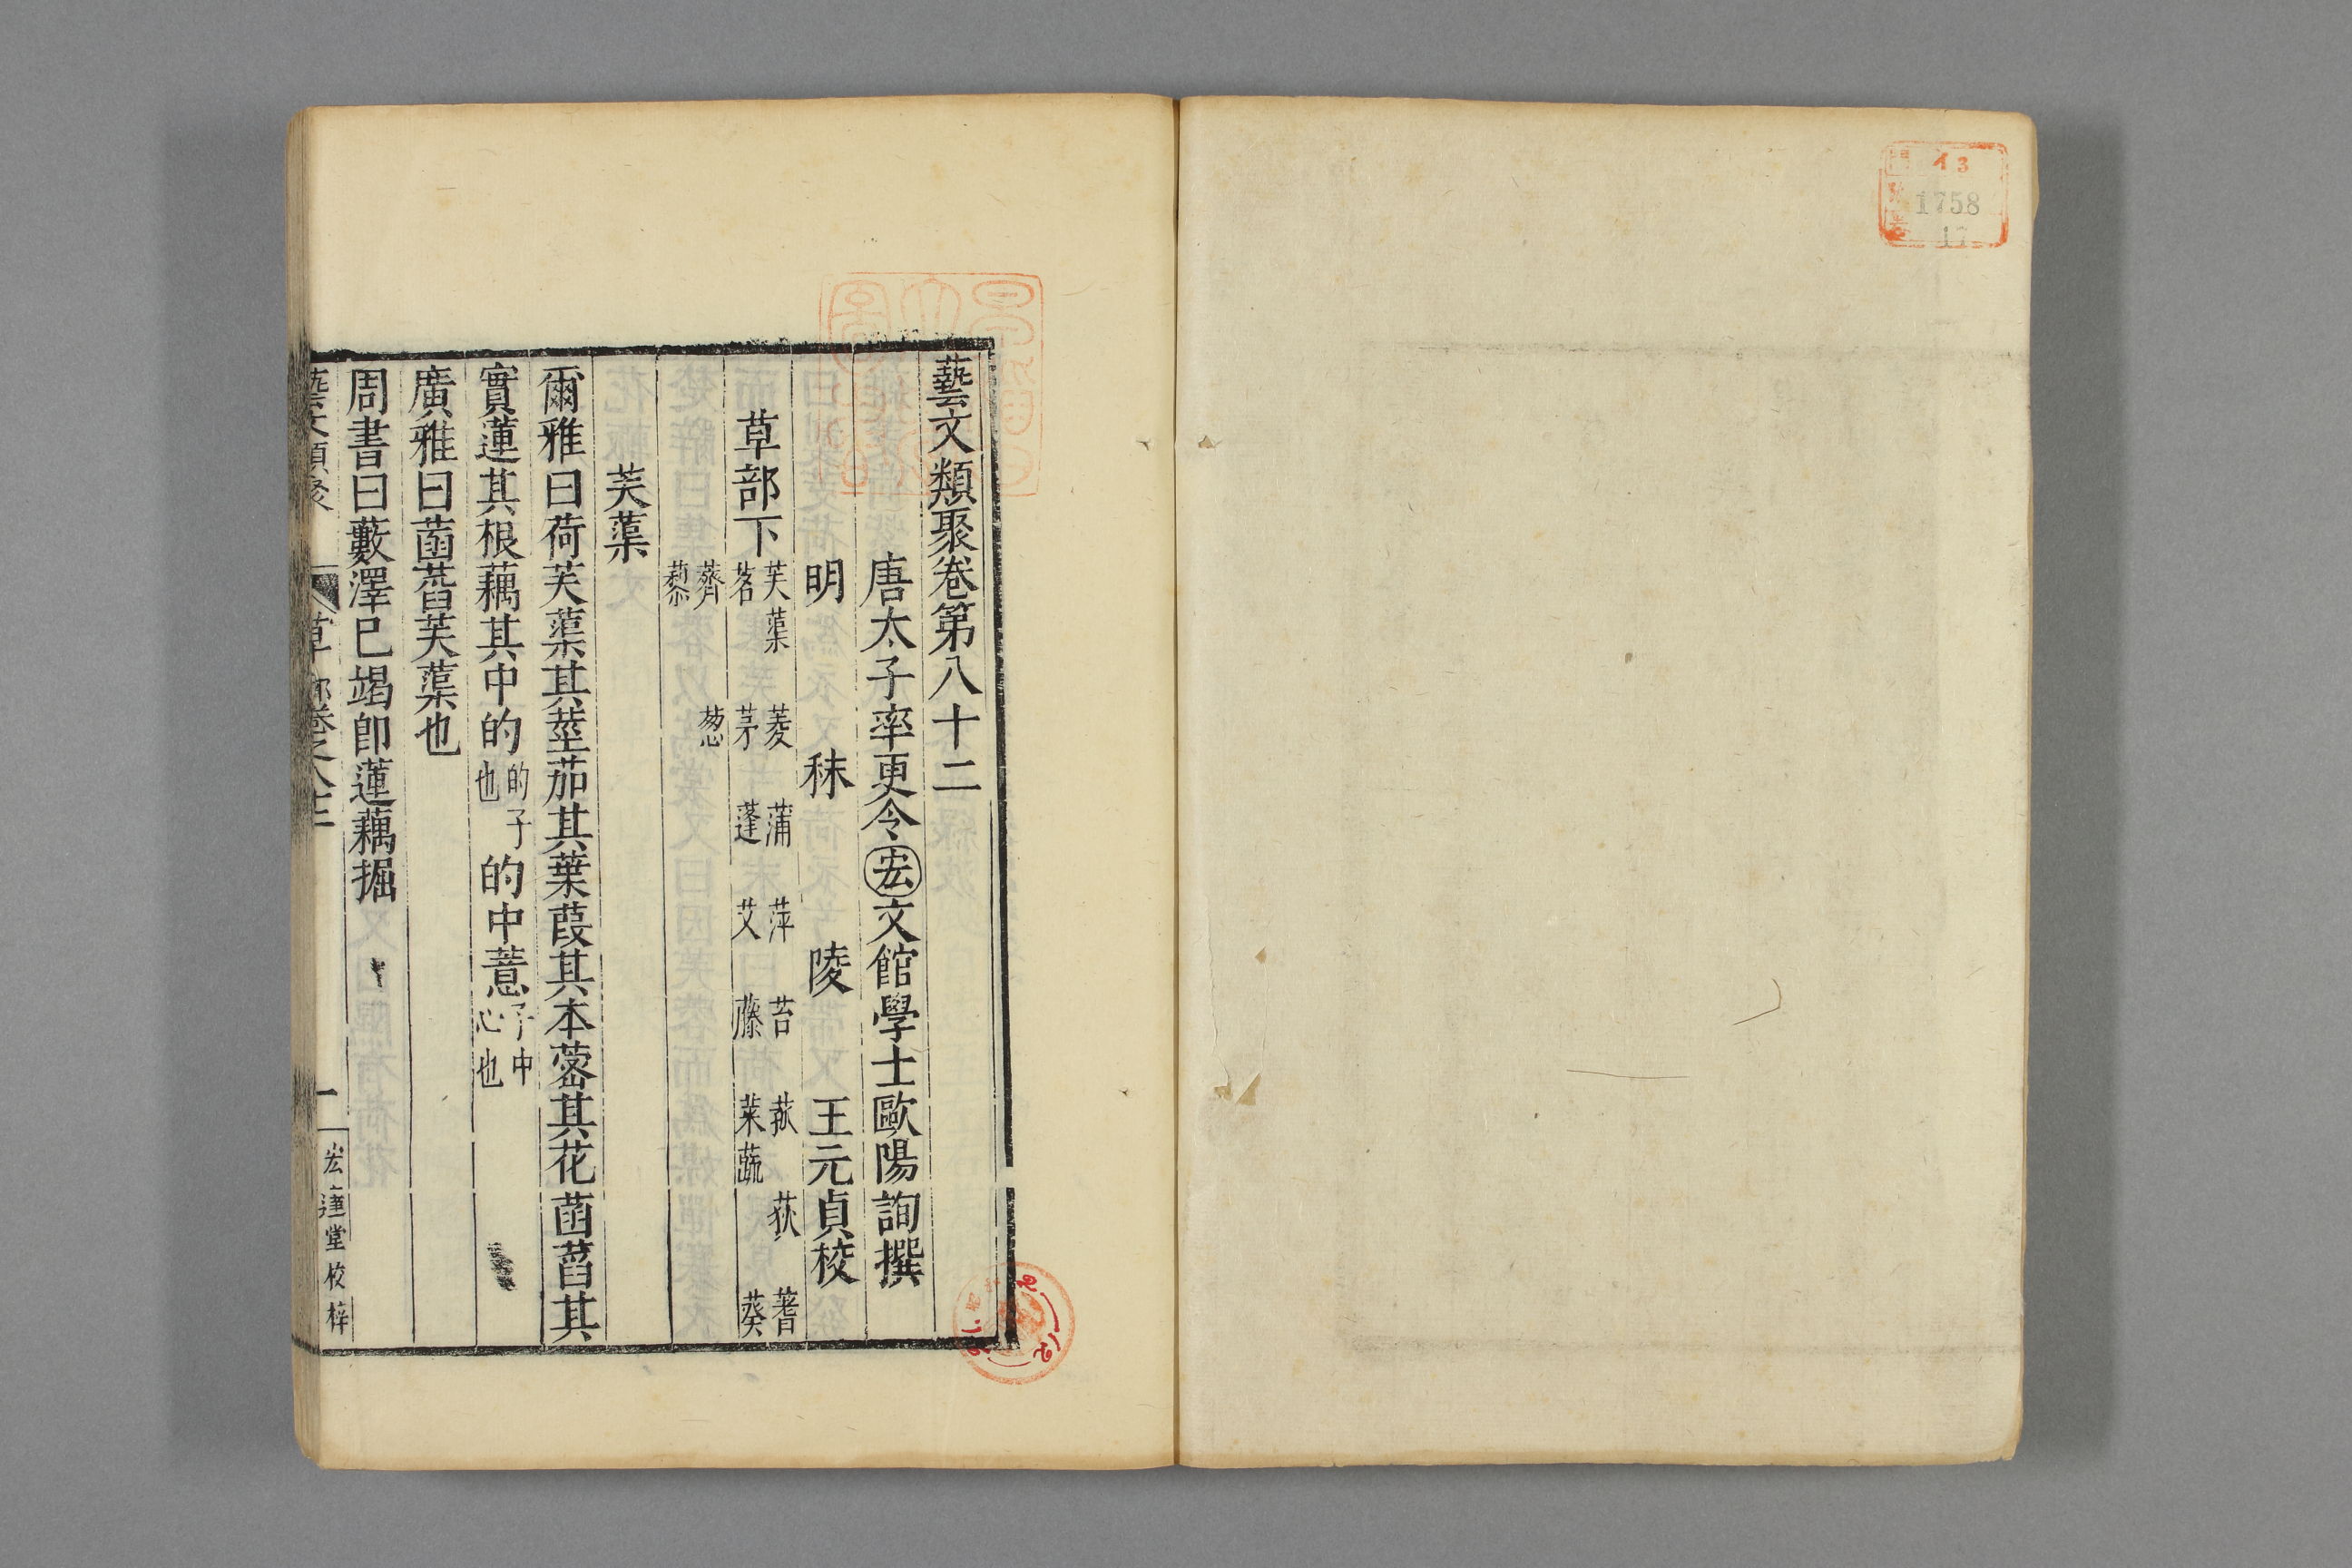 イ3
1758
17
藝文類聚卷第八十二
唐太子率更令宏文館學士歐陽詢撰
明 秣陵 王元貞校
草部下
芙蕖 菱 蒲 萍 苔 菰 荻 蓍
茗 茅 蓬 艾 藤 菜蔬 葵
薺 葱
藜
芙蕖
爾雅曰荷芙蕖其莖茄其葉葭其本蔤其花菡萏其
實蓮其根藕其中的的子也的中薏子中心也
廣雅曰菡萏芙蕖也
周書曰藪澤已竭卽蓮藕掘
藝文類聚 草部卷之八十二 一 宏達堂校梓